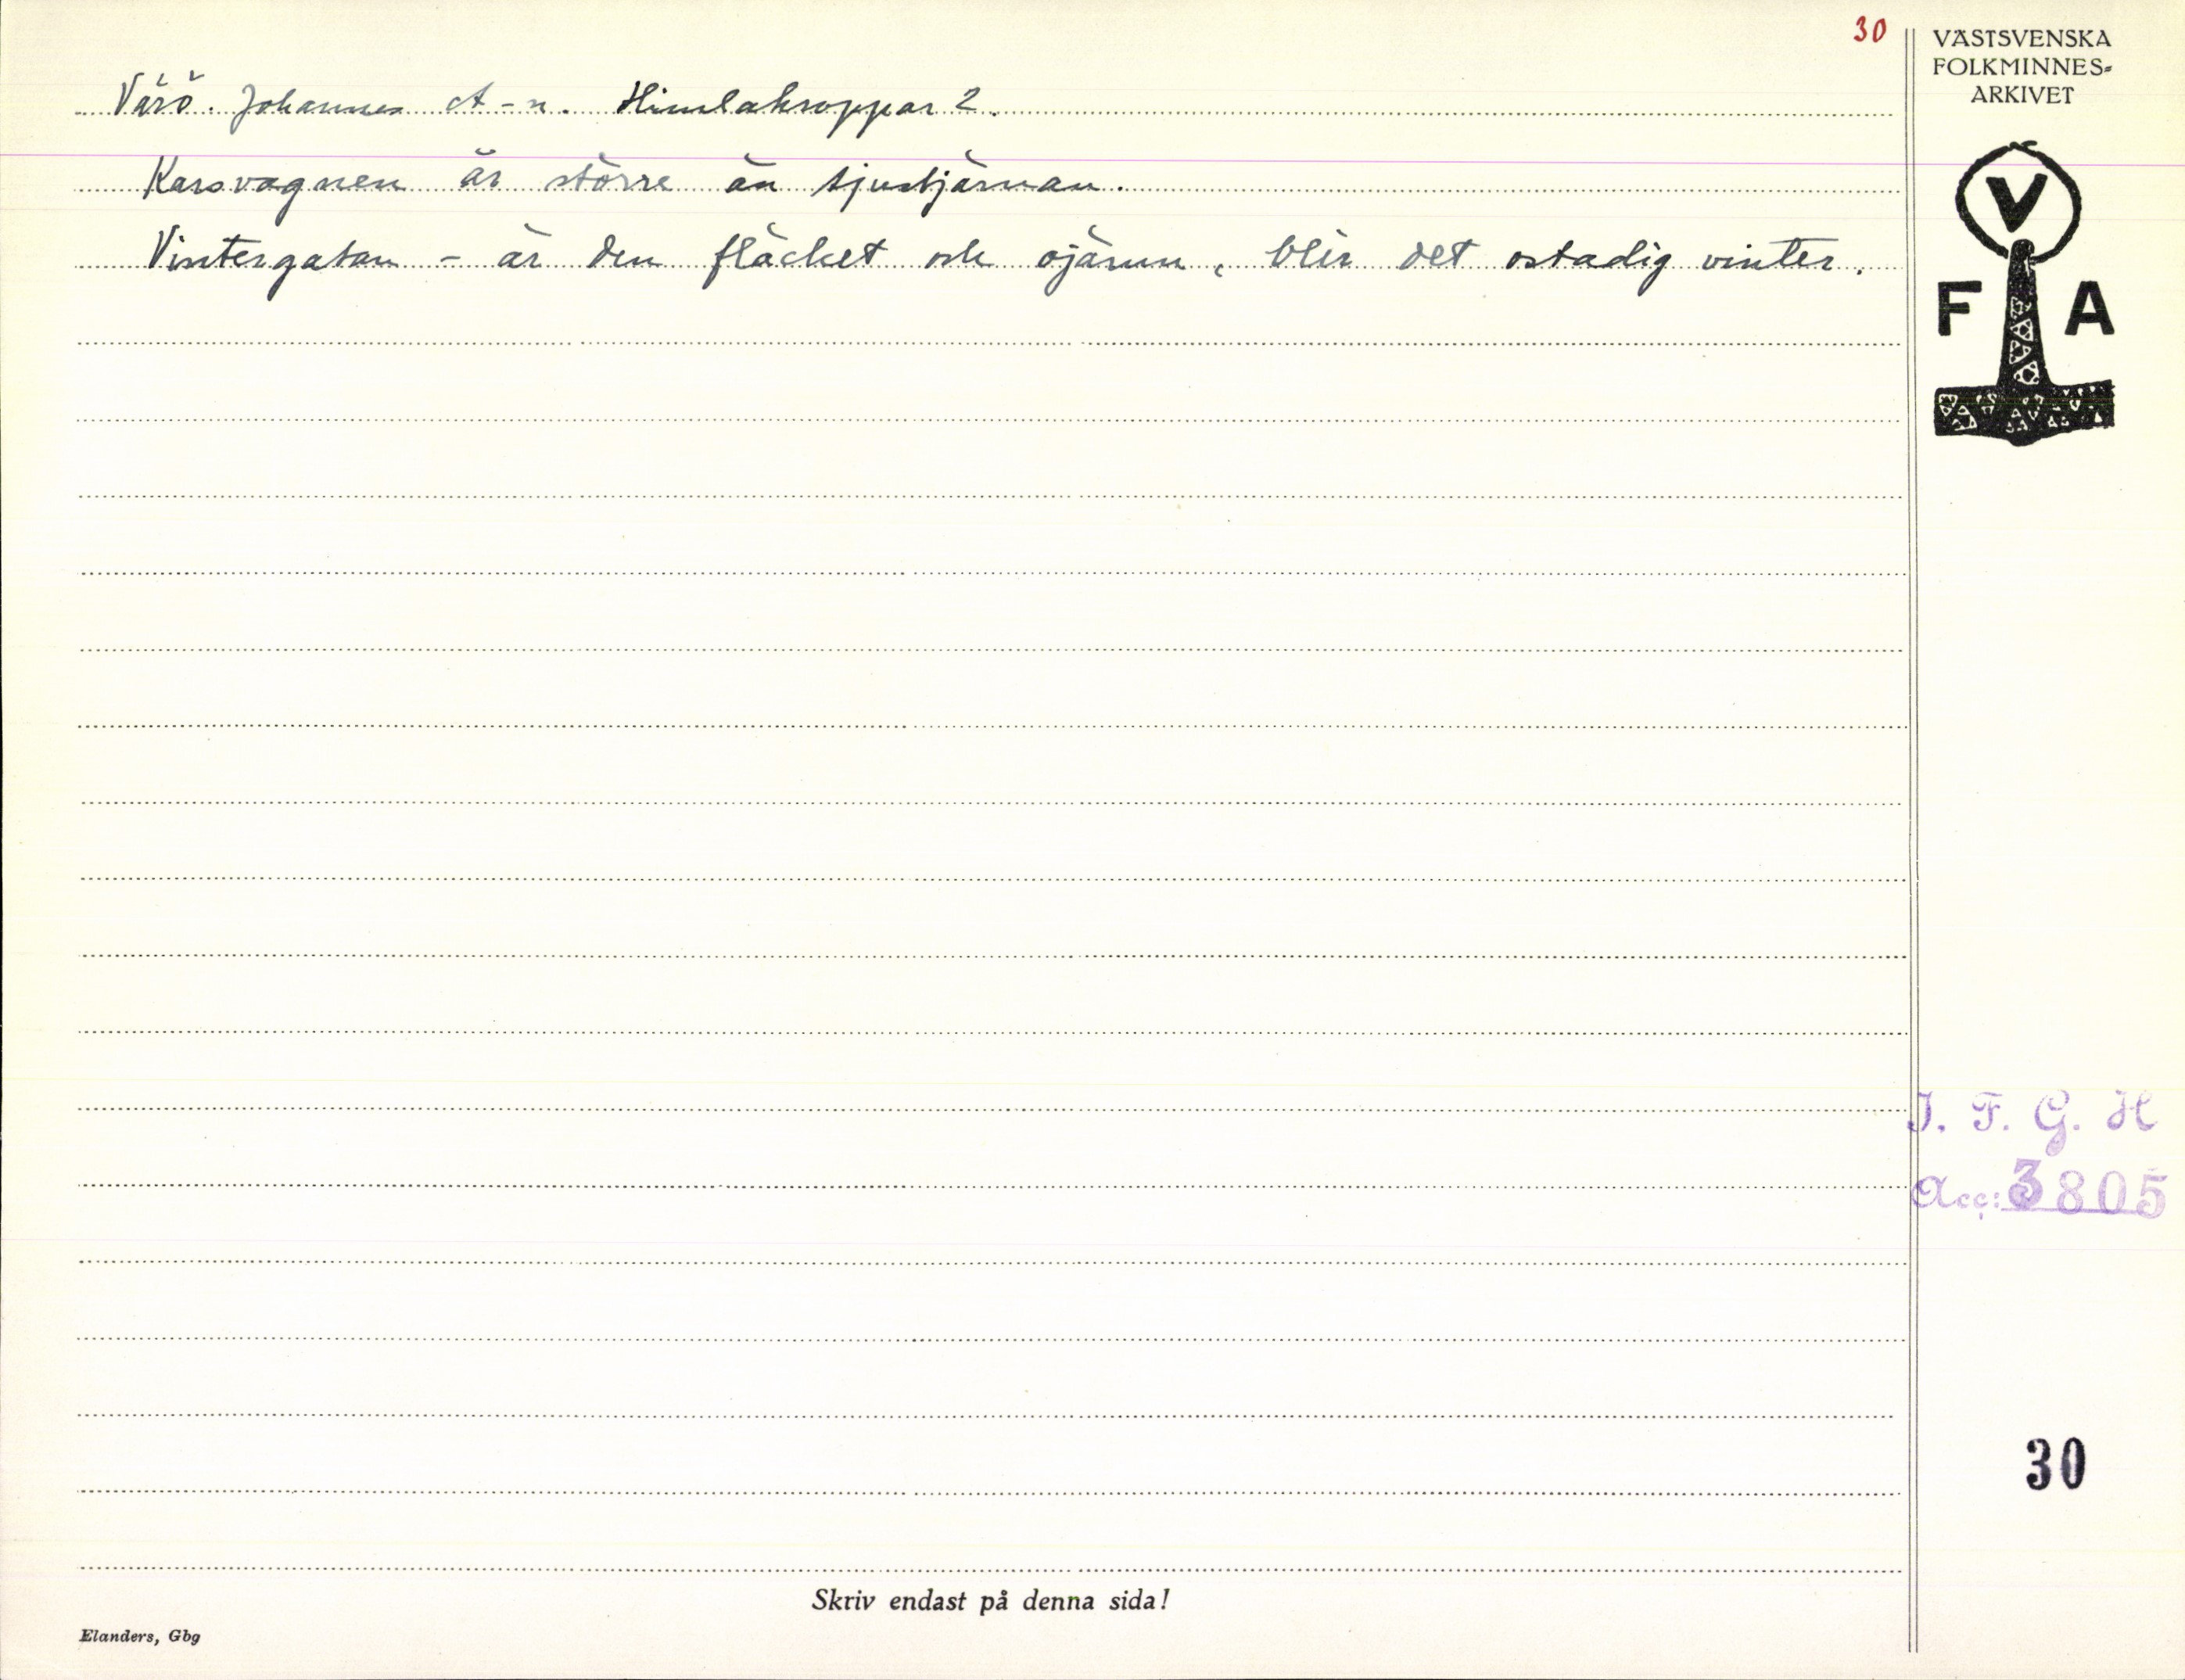 30
Värö. Johannes A-n. Himlakroppar 2.
Karsvagnen är större än sjustjärnan.
Vintergatan - är den fläcket och ojämn, blir det ostadig vinter.
VÄSTSVENSKA
FOLKMINNES-
ARKIVET
V
F A
I. F. G. H
Acc: 3805
30
Skriv endast på denna sida!
Elanders, Gbg